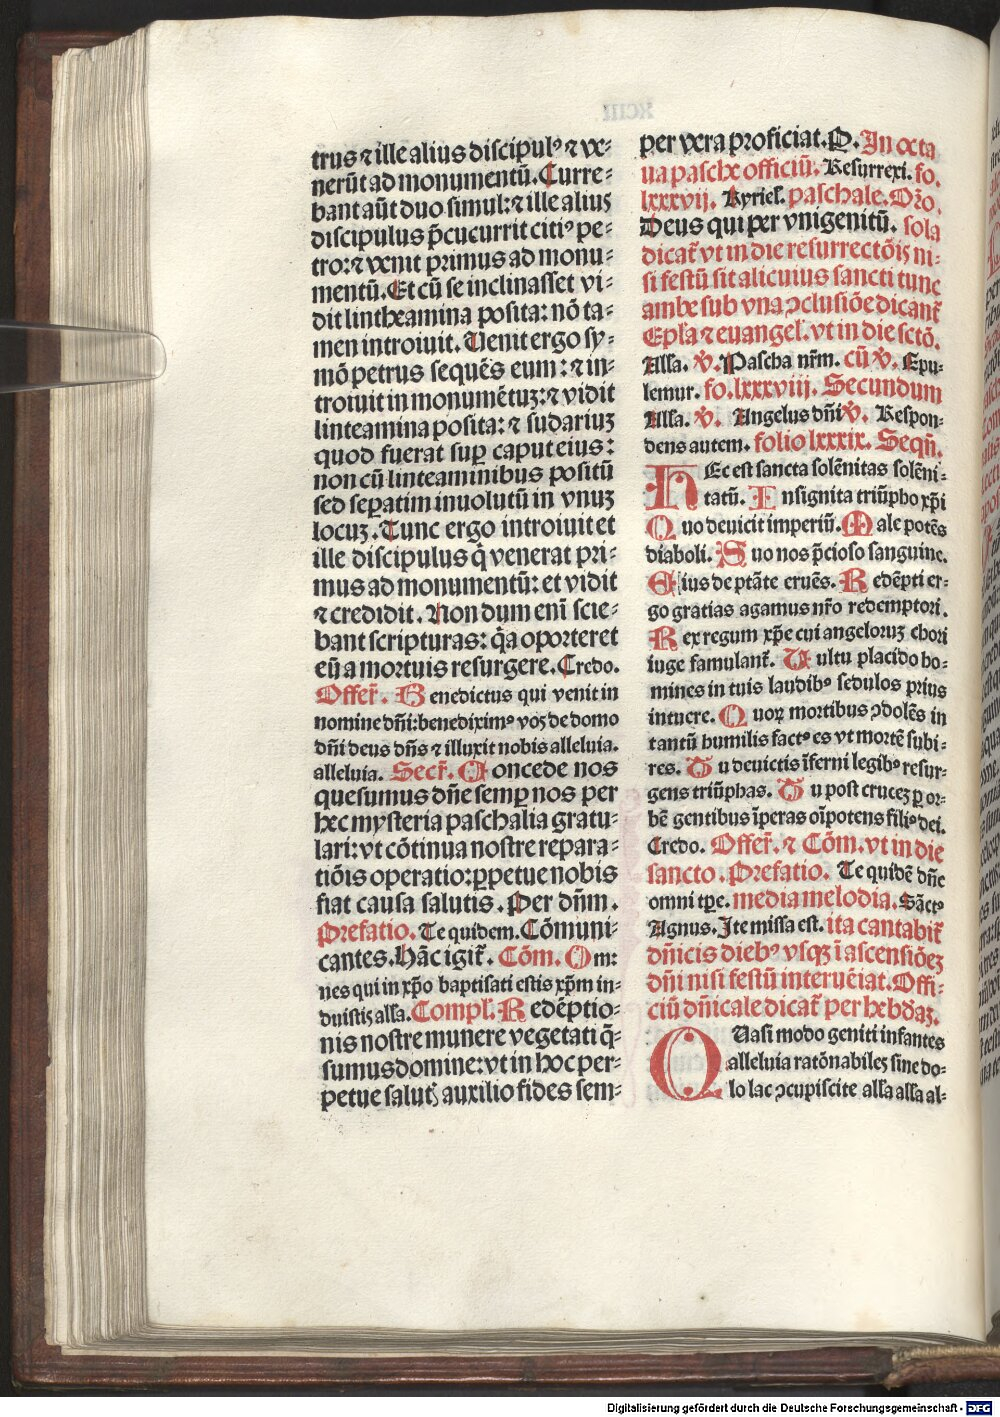 trus ⁊ ille alius discipulꝰ ⁊ ve-
nerūt ad monumentū. Curre-
bant aūt duo simul: ⁊ ille alius
discipulus p̄cucurrit citiꝰ pe-
tro: ⁊ venit primus ad monu-
mentū. Et cū se inclinasset vi-
dit lintheamina posita: nō ta-
men introiuit. Venit ergo sy-
mō petrus sequēs eum: ⁊ in-
troiuit in monumētuꝫ: ⁊ vidit
linteamina posita: ⁊ sudariuꝫ
quod fuerat suꝑ caput eius:
non cū linteaminibus positū
sed seꝑatim inuolutū in vnuꝫ
locuꝫ. Tunc ergo introiuit et
ille discipulus q̇ venerat pri-
mus ad monumentū: et vidit
⁊ credidit. Nondum enī scie-
bant scripturas: q̇a oporteret
eū a mortuis resurgere. Credo.
Offerꝭ. Benedictus qui venit in
nomine dn̄i: benediximꝰ vos de domo
dn̄i deus dn̄s ⁊ illuxit nobis alleluia.
alleluia. Secrꝭ. Concede nos
quesumus dn̄e semꝑ nos per
hec mysteria paschalia gratu-
lari: vt cōtinua nostre repara-
tiōis operatio: ꝑpetue nobis
fiat causa salutis. Per dn̄m.
Prefatio. Te quidem. Cōmuni-
cantes. Hāc igit̄. Cōm. Om-
nes qui in xp̄o baptisati estis xp̄m in-
duistis alla. Compl. Redēptio-
nis nostre munere vegetati q̄-
sumus domine: vt in hoc per-
petue salutꝭ auxilio fides sem-
per vera proficiat. P. In octa
ua pasche officiū. Resurrexi. fo.
lxxxvij. Kyriel. paschale. Or̄o.
Deus qui per vnigenitū. sola
dicat̄ vt in die resurrectōis ni-
si festū sit alicuius sancti tunc
ambe sub vna ↄclusiōe dicant̄
Ep̄la ⁊ euangel. vt in die sctō.
Alla. v̇. Pascha nr̄m. cū v̇. Epu-
lemur. fo. lxxxviii. Secundum
Alla. v̇. Angelus dn̄i v̇. Respon-
dens autem. folio lxxxix. Seqn̄.
HEc est sancta solēnitas solēni-
tatū. Insignita triūpho xp̄i
Quo deuicit imperiū. Male potēs
diaboli. Suo nos p̄cioso sanguine.
Eius de ptāte eruēs. Redēpti er-
go gratias agamus nr̄o redemptori.
Rex regum xp̄e cui angeloruꝫ chori
iuge famulant̄. Vultu placido ho-
mines in tuis laudibꝰ sedulos prius
intuere. Quoꝝ mortibus ↄdolēs in
tantū humilis factꝰ es vt mortē subi-
res. Tu deuictis īferni legibꝰ resur-
gens triūphas. Tu post cruceꝫ ꝑ or-
bē gentibus īperas oīpotens filiꝰ dei.
Credo. Offerꝭ. ⁊ Cōm. vt in die
sancto. Prefatio. Te quidē dn̄e
omni tꝑe. media melodia. Sāctꝰ
Agnus. Ite missa est. ita cantabit̄
dn̄icis diebꝰ vsqꝫ ī ascensiōeꝫ
dn̄i nisi festū interuēiat. Offi-
ciū dn̄icale dicat̄ per hebdaꝫ.
QUasi modo geniti infantes
alleluia ratōnabiles sine do-
lo lac ↄcupiscite alla alla al-
Digitalisierung gefördert durch die Deutsche Forschungsgemeinschaft - DFG